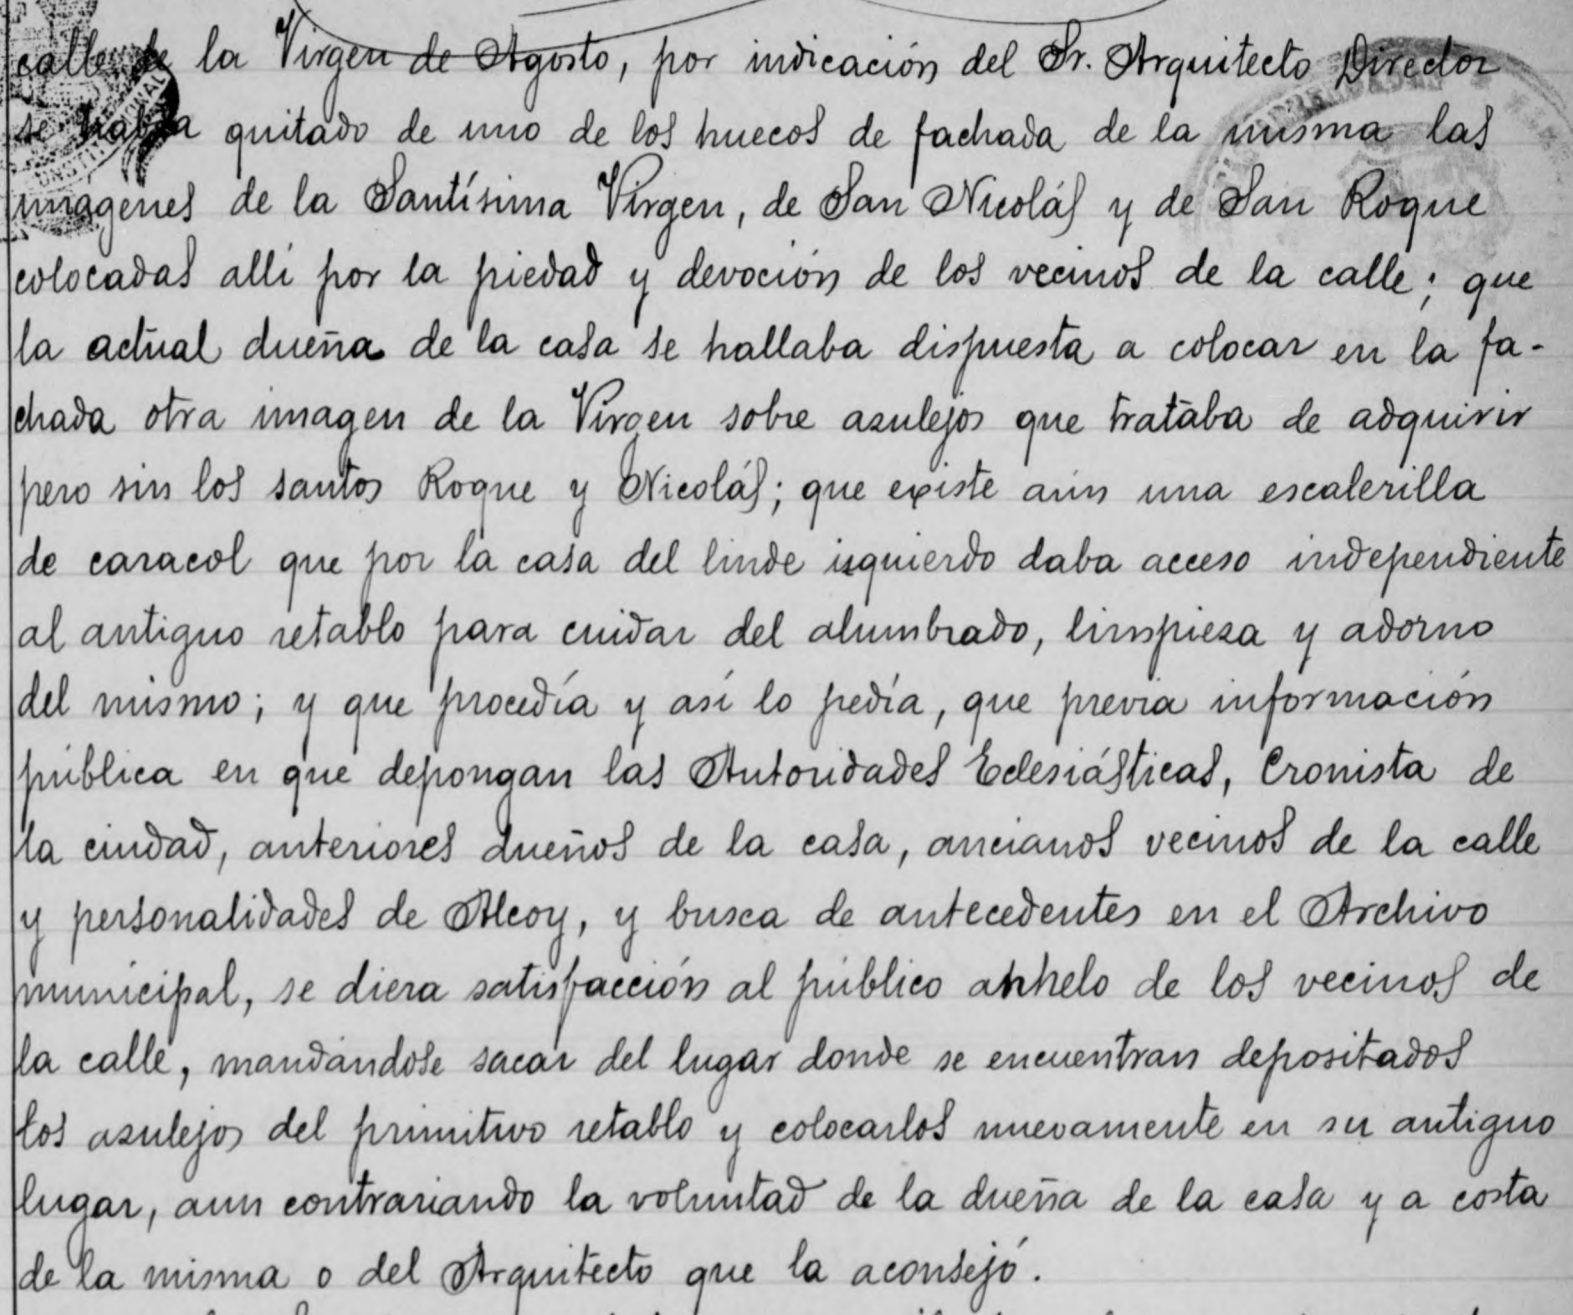 calle de la Virgen de Agosto, por indicación del Sr. Arquitecto Director
se había quitado de uno de los huecos de fachada de la misma las
imágenes de la Santísima Virgen, de San Nicolás y de San Roque
colocadas allí por la piedad y devoción de los vecinos de la calle; que
la actual dueña de la casa se hallaba dispuesta a colocar en la fa-
chada otra imagen de la Virgen sobre azulejos que trataba de adquirir
pero sin los santos Roque y Nicolás; que existe aún una escalerilla
de caracol que por la casa del linde izquierdo daba acceso independiente
al antiguo retablo para cuidar del alumbrado, limpieza y adorno
del mismo; y que procedía y así lo pedía, que previa información
pública en que depongan las Autoridades Eclesiásticas, Cronista de
la ciudad, anteriores dueños de la casa, ancianos vecinos de la calle
y personalidades de Alcoy, y busca de antecedentes en el Archivo
municipal, se diera satisfacción al público anhelo de los vecinos de
la calle, mandándose sacar del lugar donde se encuentran depositados
los azulejos del primitivo retablo y colocarlos nuevamente en su antiguo
lugar, aun contrariando la voluntad de la dueña de la casa y a costa
de la misma o del Arquitecto que la aconsejó.